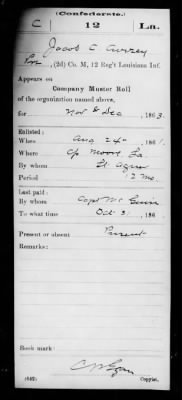 (Confederate.)
C 12 La.
Jacob C
Pvt, (2d) Co. M, 12 Reg't Louisiana Inf.
Appears on
Company Muster Roll
of the organization named above,
for Nov & Dec, 1863.
Enlisted:
When Aug 24, 1861.
Where Cp Moore La.
By whom Lt
Period 12 mo.
Last paid:
By whom Capt
To what time Oct 31, 186
Present or absent Present
Remarks:
Book mark:
(642) Copyist.